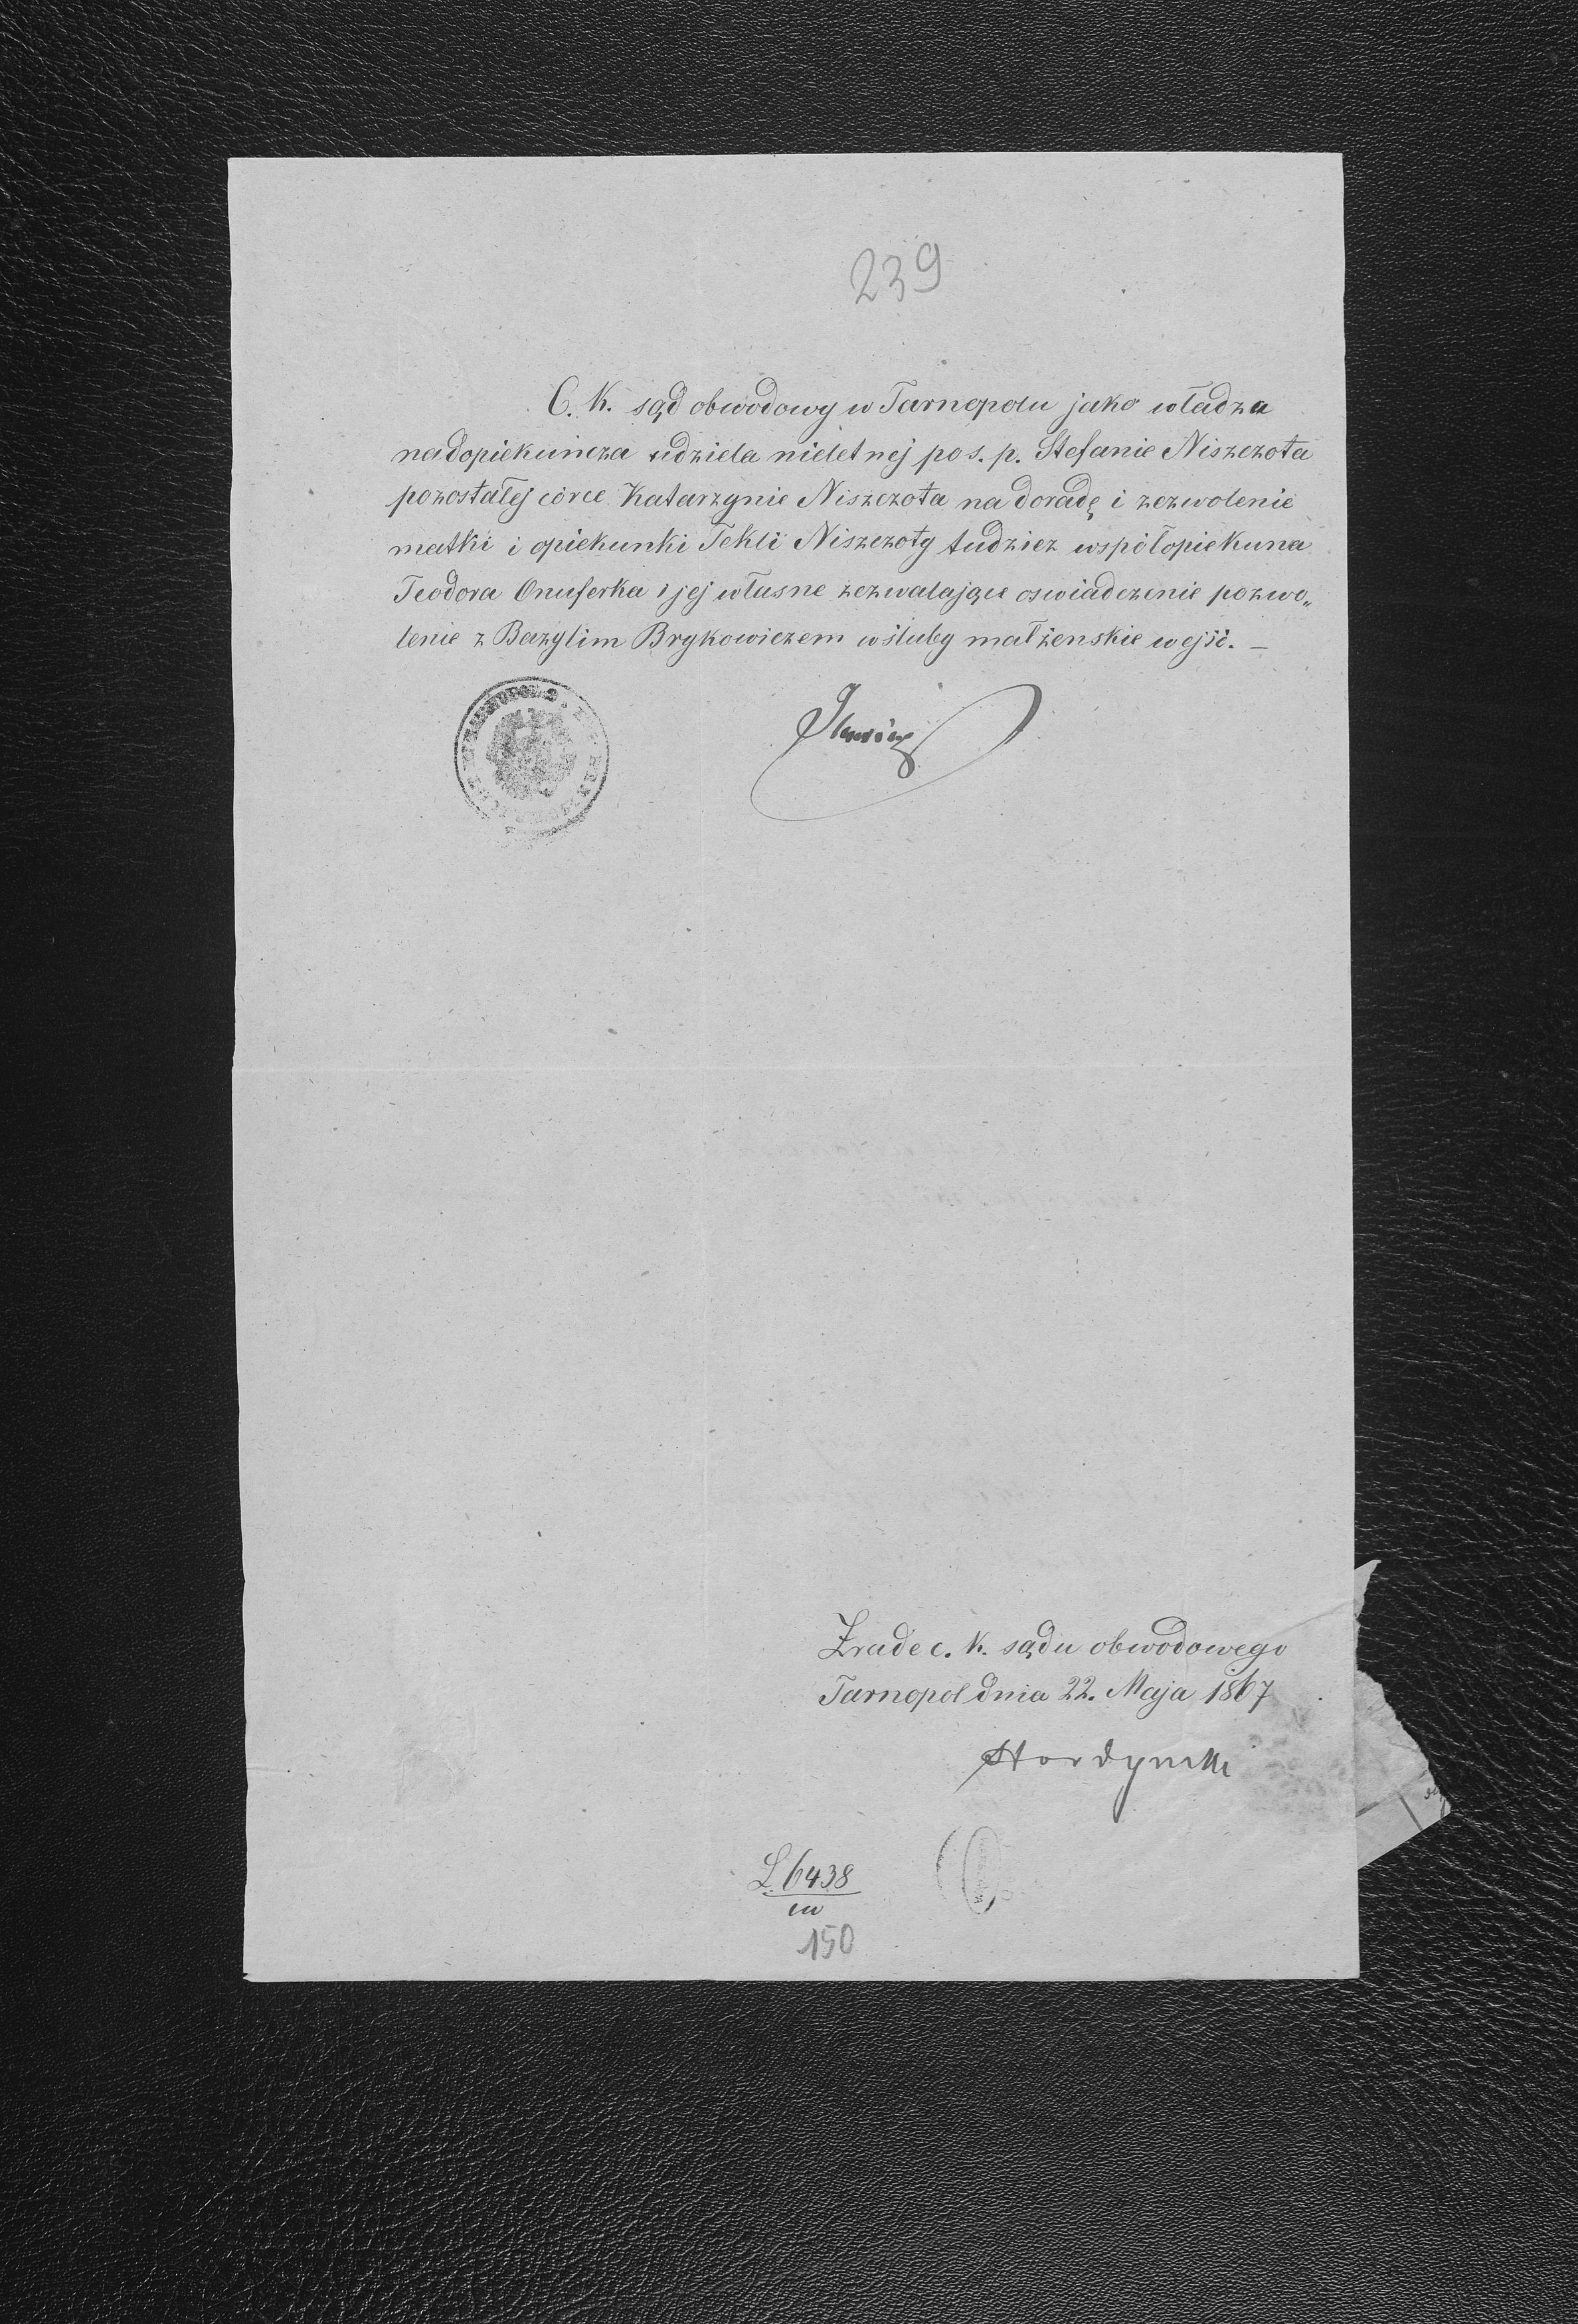 239
C. K. sąd obwodowy w Tarnopolu jako władza
nadopiekuńcza udziela nieletnej po s. p. Stefanie Niszczota
pozostałej córce Katarzynie Niszczota na doradę i zezwolenie
matki i opiekunki Tekli Niszczoty tudzież współopiekuna
Teodora Onuferka i jej własne zezwalające oswiadczenie pozwo„
lenie z Bazylim Brykowiczem w śluby małżenskie wejść. —
Z rade c. k. sądu obwodowego
Tarnopol dnia 22. Maja 1867
Hordynski
L. 6438
150